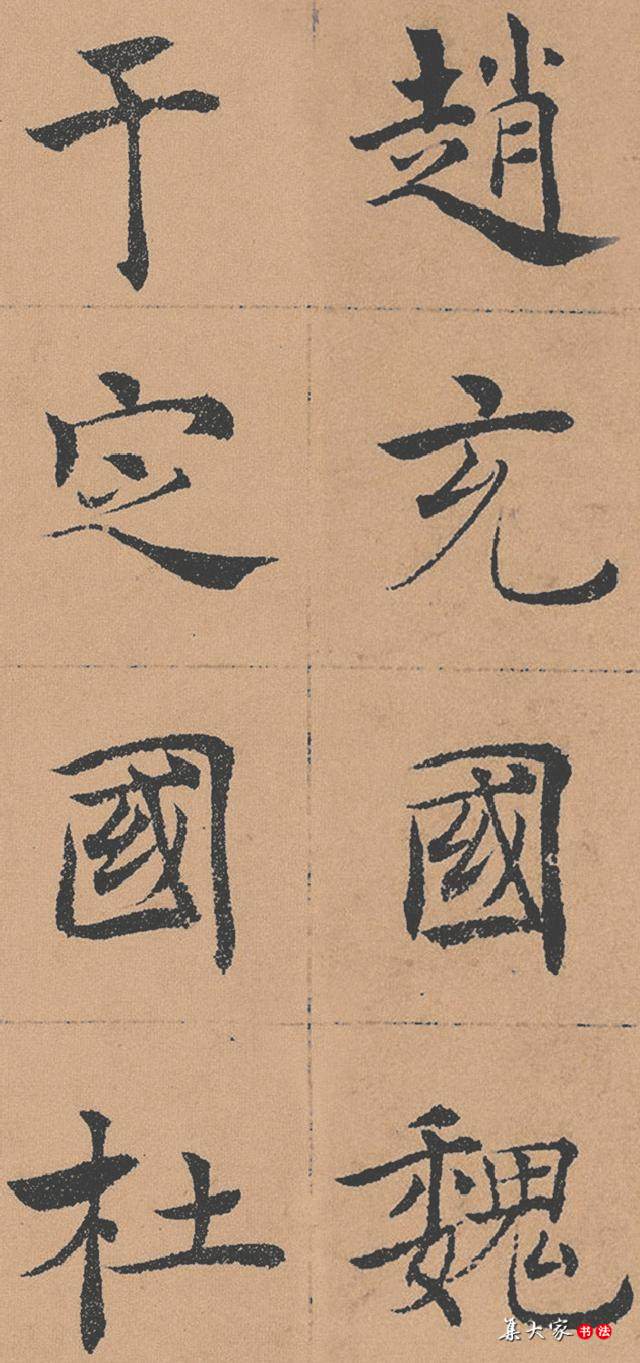 趙充國魏
于定國杜
集大家书法